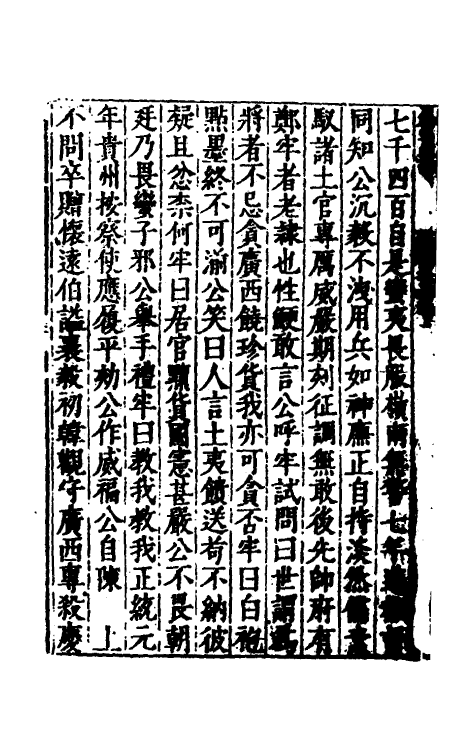 七千四百自是蠻夷畏服嶺南無警七年
同知公沉毅不洩用兵如神廉正自持淡然
馭諸土官專厲威嚴期刻征調無敢後先帥府有
鄭牢者老隸也性鯁敢言公呼牢試問曰世謂爲
將者不忌貪廣西饒珍貨我亦可貪否牢曰白袍
點墨終不可湔公笑曰人言土夷餽送苟不納彼
疑且忿柰何牢曰居官黷貨國憲甚嚴公不畏朝
廷乃畏蠻子邪公舉手禮牢曰教我教我正統元
年貴州按察使應履平劾公作威福公自陳　上
不問卒贈懷遠伯諡襄毅初韓觀守廣西專殺慶